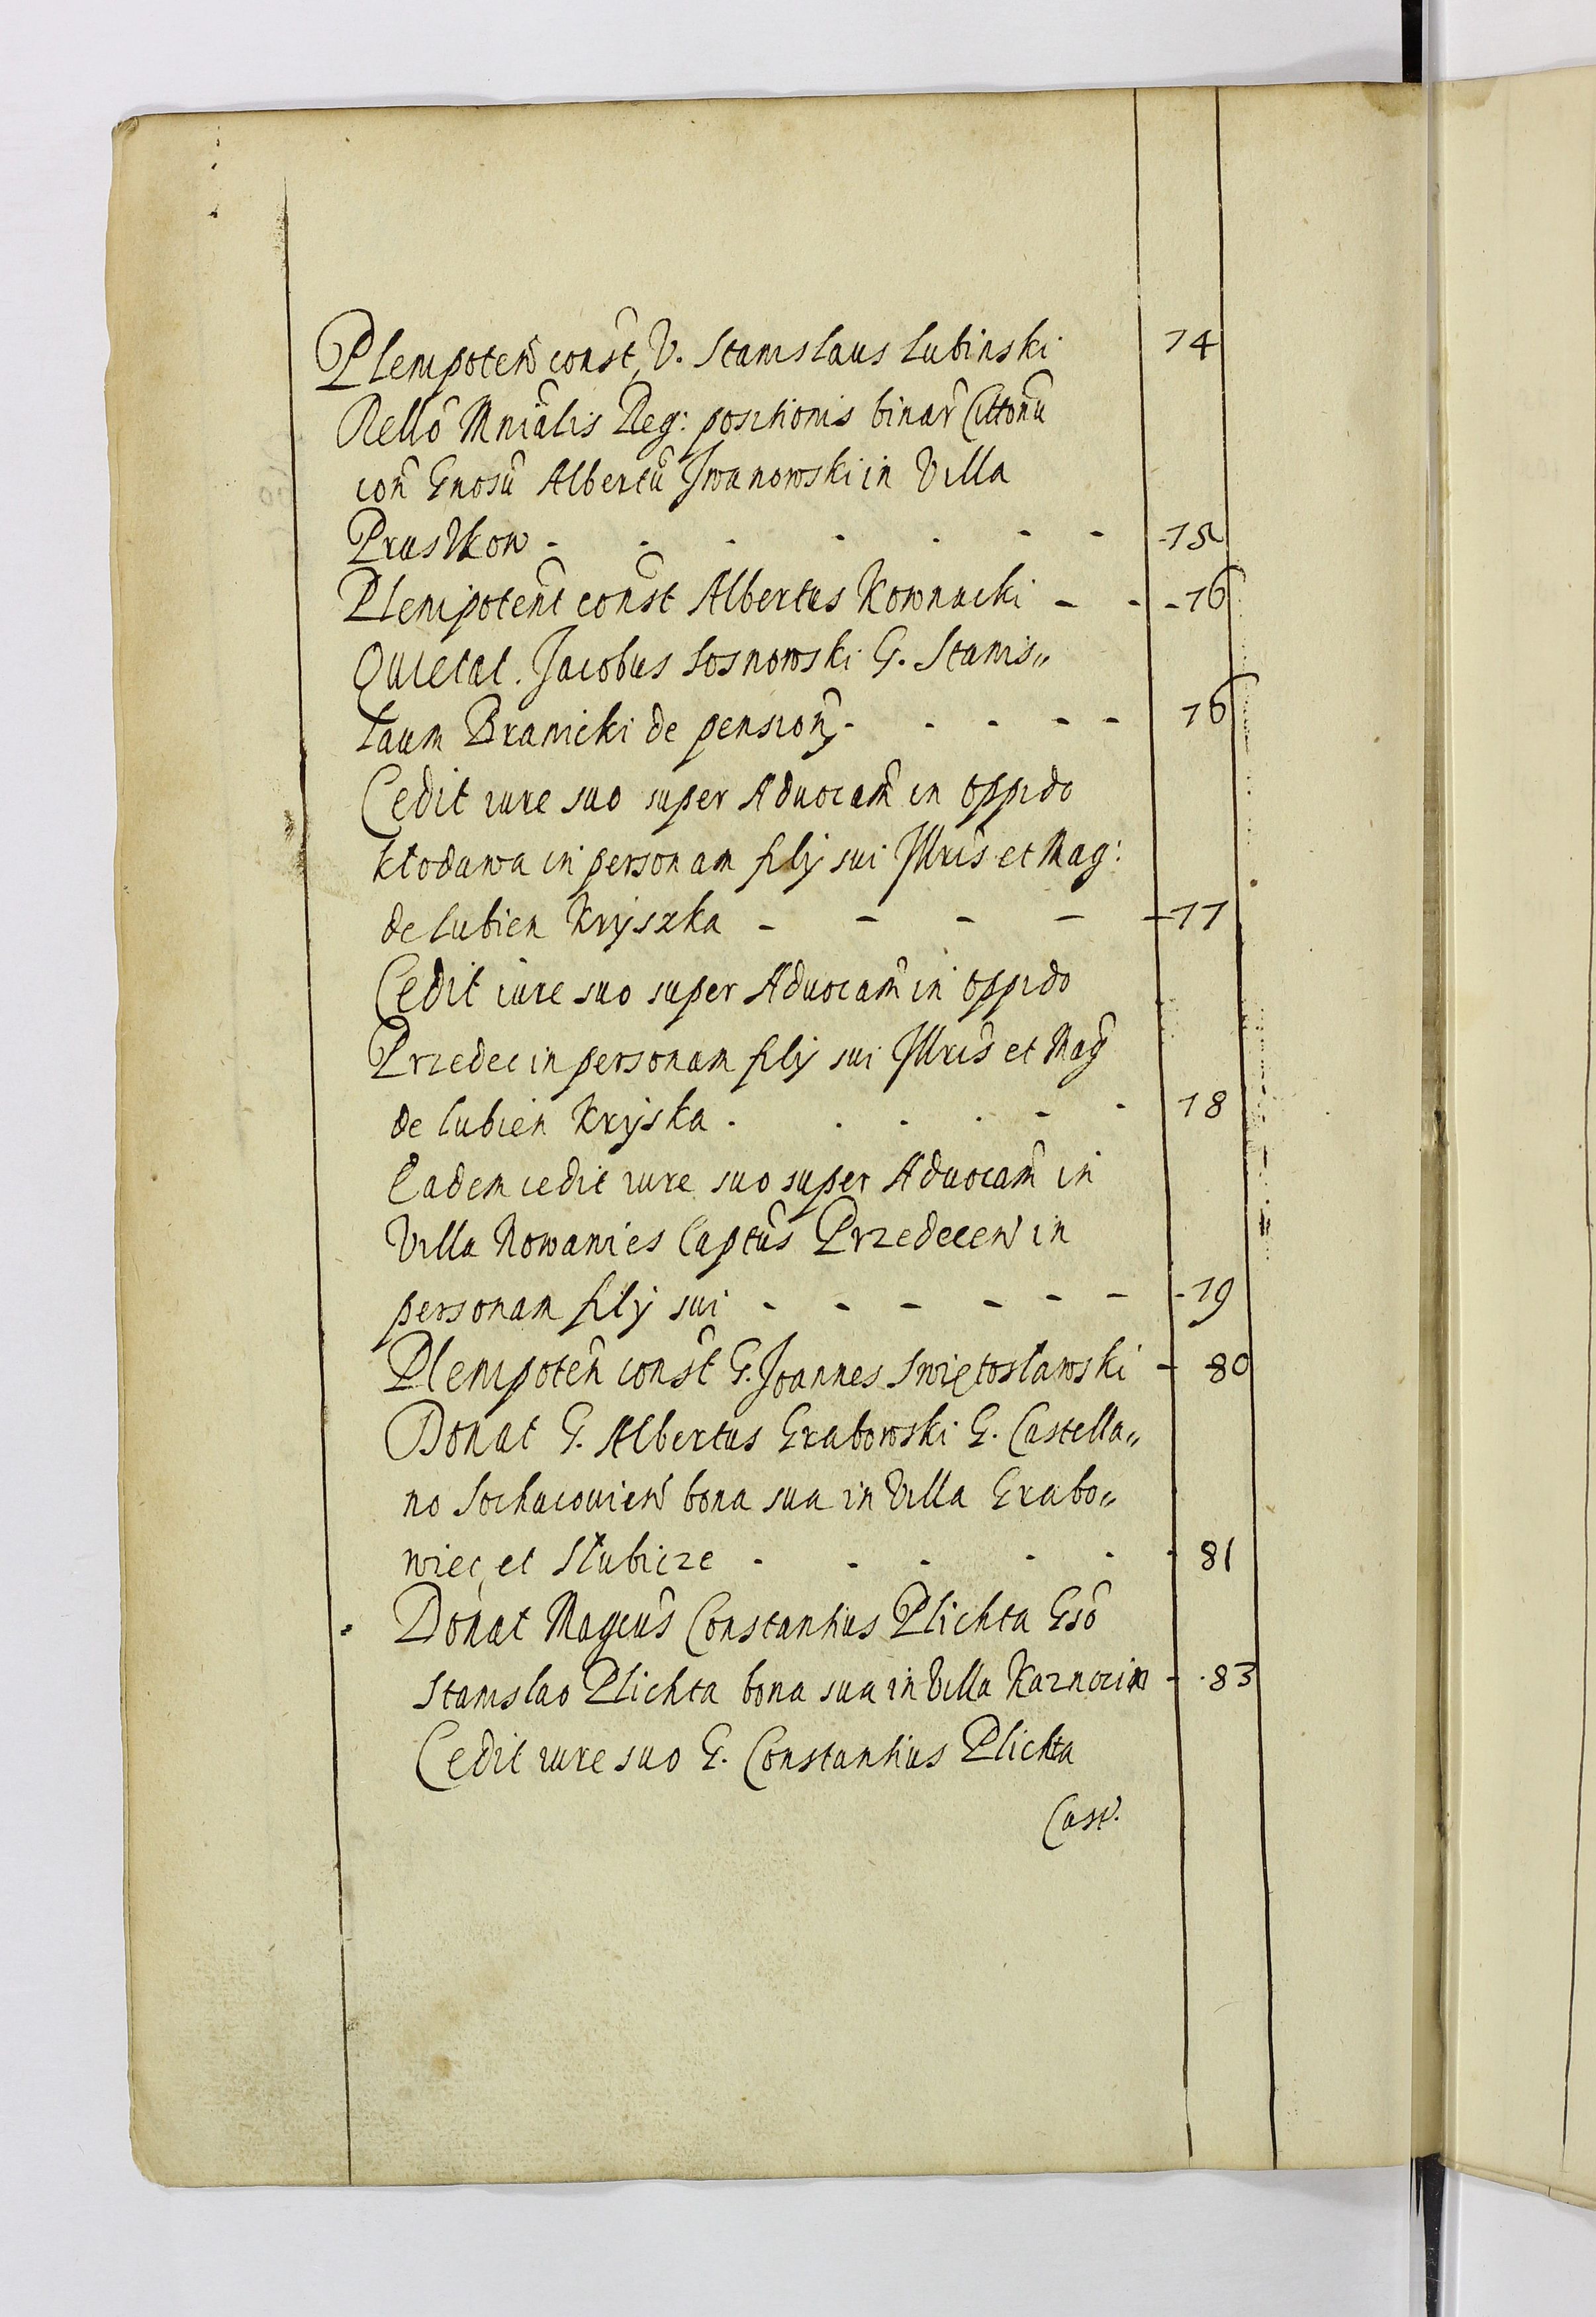 Plenipoteñ const, V. Stanislaus Lubinski 74
Rello Mnialis Reg: positionis binar Cittonu
con Gnosu Albertu Jwanowski in Villa
Pruszkow - - - - - - - 75
Plenipotent const Albertus Kownacki - - - 76
Quietat. Jacobus Sosnowski G. Stanis„
laum Branicki de pension - - - - - 76
Cedit iure suo super Aduocam in oppido
Kłodawa in personam filij sui Jllris et Mag:
de Lubien Kryszka - - - - - 77
Cedit iure suo super Aduocam in oppido
Przedec in personam filij sui Jllris et Mag
de Lubien Kryska . . . . - - 78
Eadem cedit iure suo super Aduocam in
Villa Nowawies Captus Przedecen in
personam filij sui - - - - - - - 79
Plenipoten const G. Joannes Swiętosławski - 80
Donat G. Albertus Grabowski G. Castella„
no Sochacouien bona sua in Villa Grabo„
wiec, et Słubicze - - - - - - 81
Donat Magcus Constantius Plichta Gso
Stanislao Plichta bona sua in Villa Kaznocin - 83
Cedit iure suo G. Constantius Plichta
Cast.